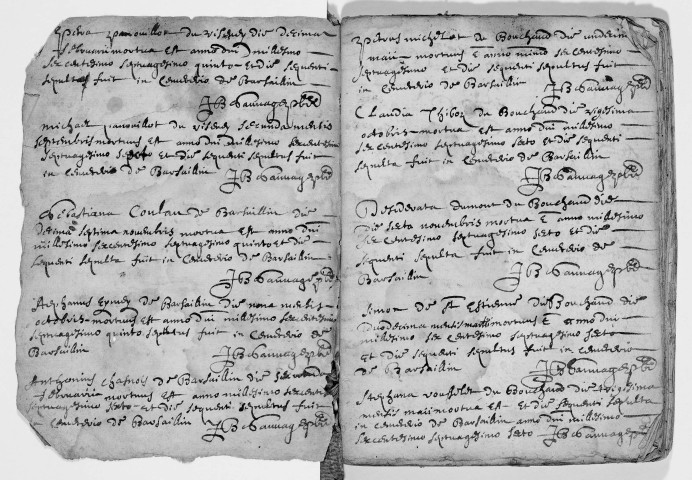 Petra panouillot du viseney die decima
februarii mortua est anno dni millesimo
sexcentesimo septuagesimo quinto et die sequenti
sepulta fuit in Cemeterio de Barsaillin
JB Sauvage pbr
michael panouillot du viseney secunda mensis
septembris mortuus est anno dni millesimo sexcentesimo
septuagesimo sexto et die sequenti sepultus fuit
in Cemeterio de Barsaillin
JB Sauvage pbr
Sebastiana Coulan de Barsaillin die
decima septima novembris mortua est anno dni
millesimo sexcentesimo septuagesimo quinto et die
sequenti sepulta fuit in Cemeterio de Barsaillin
JB Sauvage pbr
Stephanus de Barsaillin die nona mensis
octobris mortuus est anno dni millesimo sexcentesimo
septuagesimo quinto sepultus fuit in Cemeterio de
Barsaillin JB Sauvage pbr
Anthonius de Barsaillin die secunda
februarii mortuus est anno millesimo sexcentesimo
septuagesimo sexto et die sequenti sepultus fuit
in Cemeterio de Barsaillin JB Sauvage pbr
Petrus michelot de Bouchaud die undecim
maii mortuus E anno mimo sexcentesimo
septuagesimo et die sequenti sepultus fuit
in Cemeterio de Barsaillin JB Sauvage pbr
Claudia du Bouchaud die vigesima
octobris mortua est anno dni millesimo
sexcentesimo septuagesimo sexto et die sequenti
sepulta fuit in Cemeterio de Barsaillin
JB Sauvage pbr
Desiderata dumont du Bouchaud die
sexta novembris mortua E anno millesimo
sexcentesimo septuagesimo sexto et die
sequenti sepulta fuit in Cemeterio de
Barsaillin JB Sauvage pbr
Simon de St Estienne du Bouchaud die
duodecima mensis mortuus E anno dni
millesimo sexcentesimo septuagesimo sexto
et die sequenti sepultus fuit in Cemeterio
de Barsaillin JB Sauvage pbr
Stephana du Bouchaud die trigesima
mensis maii mortua est et die sequenti sepulta
in Cemeterio de Barsaillin anno dni millesimo
sexcentesimo septuagesimo sexto JB Sauvage pbr